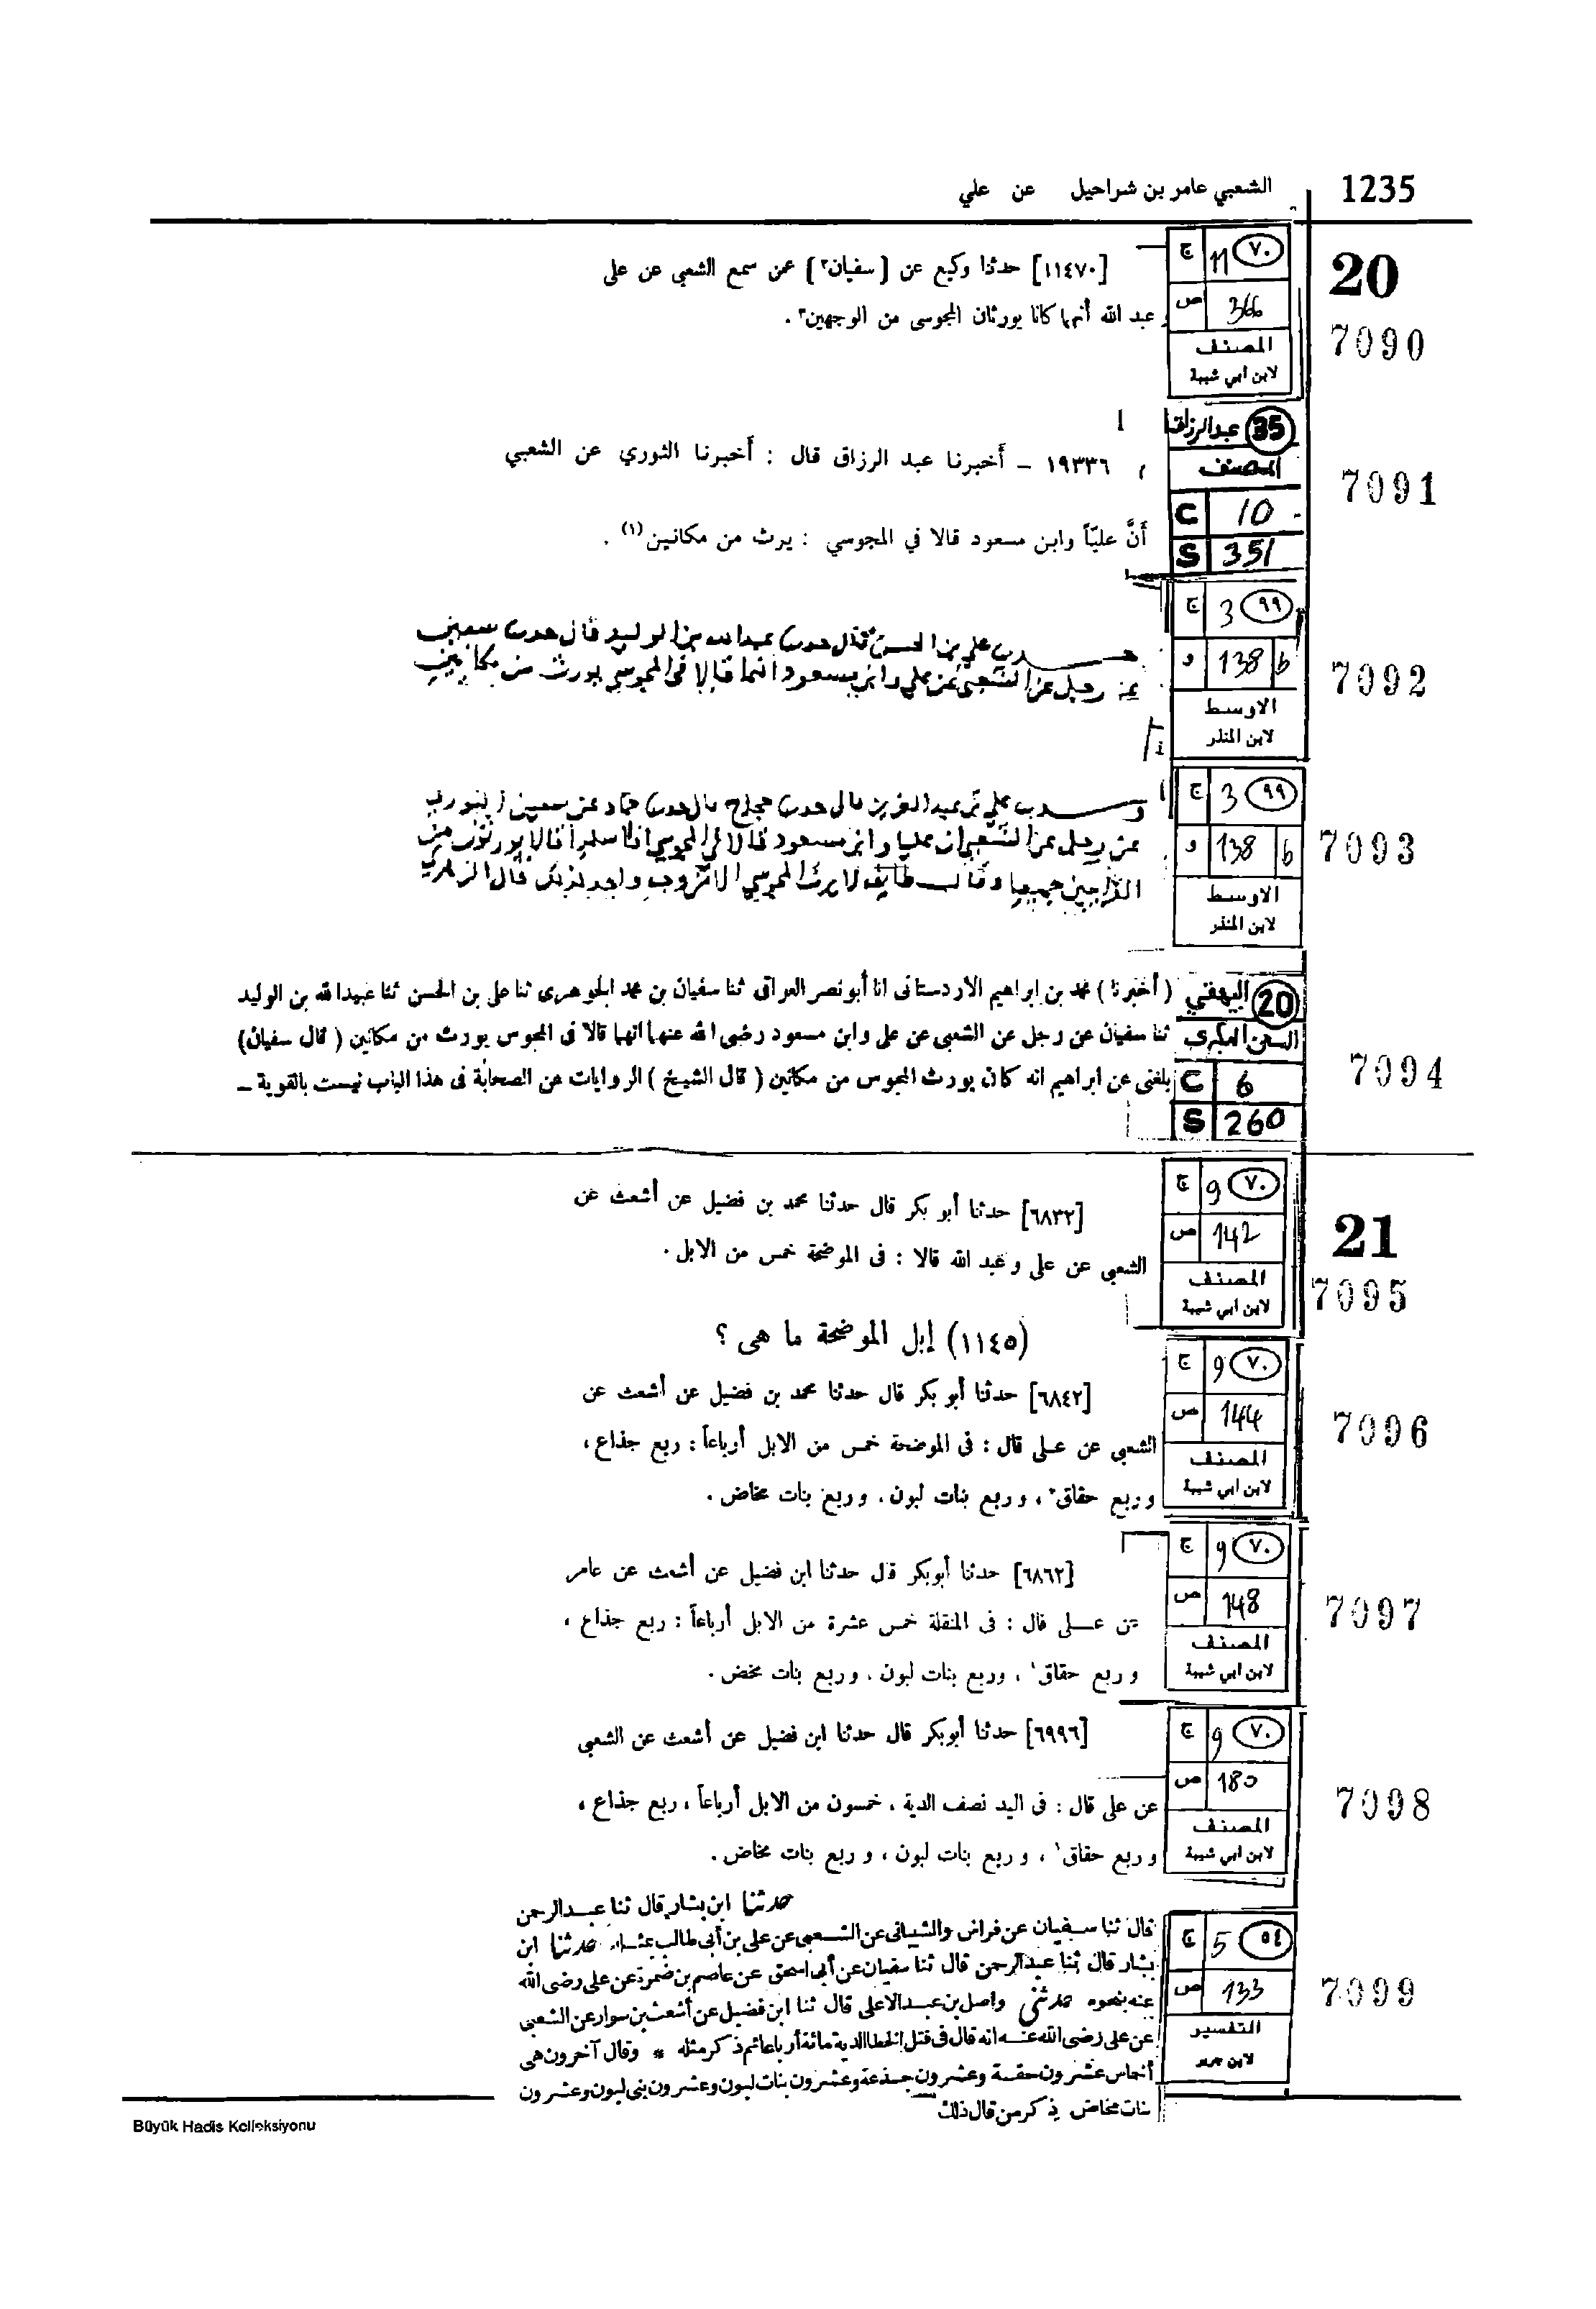 1235 الشعبي عامر بن شراحيل عن علي
20
7090
ج 11 ٧٠
ص 366
المصنف
لابن ابي شيبة
[١١٤٧٠] حدثنا وكيع عن [سفيان٢] عمن سمع الشعبي عن على
و عبد الله أنهما كانا يورثان المجوسى من الوجهين٣ .
7091
35 عبدالرزاق
المصنف
C 10
S 351
١٩٣٣٦ – أخبرنا عبد الرزاق قال : أخبرنا الثوري عن الشعبي
أَنَّ عليّاً وابن مسعود قالا في المجوسي : يرث من مكانين(١) .
7092
ج 3 ٩٩
و 138 b
الاوسط
لابن المنذر
علي بن الحسن قال عبدالله بن الوليد قال سفين
عن رجل عن الشعبي عن علي وابن مسعود انهما قالا في المجوسي يورث من مكانين
7093
ج 3 ٩٩
و 138 b
الاوسط
لابن المنذر
علي بن عبدالعزيز قال حجاج قال حماد عن سفين
عن رجل عن الشعبي ان عليا وابن مسعود قالا في المجوسي اذا اسلموا قالا يورثون من
جميعا وقالت طائفة لا يرث المجوسي الا من وجه واحد كذلك قال الزهري
7094
20 البيهقي
السنن الكبرى
C 6
S 260
( أخبرنا ) محمد بن ابراهيم الاردستانى انا أبو نصر العراقى ثنا سفيان بن محمد الجوهرى ثنا على بن الحسن ثنا عبيدالله بن الوليد
ثنا سفيان عن رجل عن الشعبى عن على وابن مسعود رضى الله عنهما انهما قالا فى المجوس يورث من مكانين ( قال سفيان)
بلغنى عن ابراهيم انه كان يورث المجوس من مكانين ( قال الشيخ ) الروايات عن الصحابة فى هذا الباب ليست بالقوية –
21
7095
ج 9 ٧٠
ص 142
المصنف
لابن ابي شيبة
[٦٨٣٢] حدثنا أبو بكر قال حدثنا محمد بن فضيل عن أشعث عن
الشعبي عن على و عبد الله قالا : فى الموضحة خمس من الابل .
(١١٤٥) إبل الموضحة ما هى ؟
7096
ج 9 ٧٠
ص 144
المصنف
لابن ابي شيبة
[٦٨٤٢] حدثنا أبو بكر قال حدثنا محمد بن فضيل عن أشعث عن
الشعبي عن عـلى قال : فى الموضحة خمس من الابل أرباعاً : ربع جذاع ،
و ربع حقاق ، و ربع بنات لبون ، و ربع بنات مخاض .
7097
ج 9 ٧٠
ص 148
المصنف
لابن ابي شيبة
[٦٨٦٢] حدثنا أبوبكر قال حدثنا ابن فضيل عن أشعث عن عامر
عن عـلى قال : فى المنقلة خمس عشرة من الابل أرباعاً : ربع جذاع ،
و ربع حقاق١ ، وربع بنات لبون ، و ربع بنات مخض .
7098
ج 9 ٧٠
ص 180
المصنف
لابن ابي شيبة
[٦٩٩٦] حدثنا أبوبكر قال حدثنا ابن فضيل عن أشعث عن الشعبى
عن على قال : فى اليد نصف الدية ، خمسون من الابل أرباعاً ، ربع جذاع ،
و ربع حقاق١ ، و ربع بنات لبون ، و ربع بنات مخاض .
7099
ج 5 ٥٤
ص 133
التفسير
لابن جرير
حدثنا ابن بشار قال ثنا عبدالرحمن
قال ثنا سفيان عن فراس والشيبانى عن الشعبى عن على بن أبى طالب بمثله حدثنا ابن
بشار قال ثنا عبدالرحمن قال ثنا سفيان عن أبى اسحق عن عاصم بن ضمرة عن على رضى الله
عنه بنحوه حدثنى واصل بن عبدالاعلى قال ثنا ابن فضيل عن أشعث بن سوار عن الشعبى
عن على رضى الله عنه انه قال فى قتل الخطا الدية مائة أرباعا ثم ذكر مثله * وقال آخرون هى
أخماس عشرون حقة وعشرون جذعة وعشرون بنات لبون وعشرون بنى لبون وعشرون
بنات مخاض ذكر من قال ذلك
Büyük Hadis Kolleksiyonu